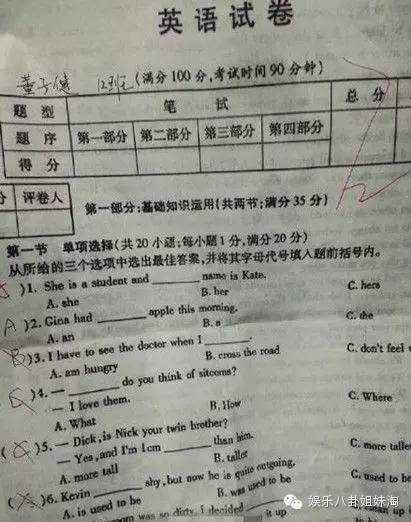 英语试卷
董子健 12班 (满分100分,考试时间90分钟)
题 型 笔 试 总 分
题 序 第一部分 第二部分 第三部分 第四部分
得 分
分 评卷人
第一部分:基础知识运用(共两节;满分35分)
第一节 单项选择(共20小题;每小题1分,满分20分)
从所给的三个选项中选出最佳答案,并将其字母代号填入题前括号内。
)1. She is a student and ______ name is Kate.
A. she B. her C. hers
A )2. Gina had ______ apple this morning.
A. an B. a C. the
B )3. I have to see the doctor when I ______.
A. am hungry B. cross the road C. don't feel
)4. — ______ do you think of sitcoms?
— I love them.
A. What B. How C. Where
( )5. — Dick, is Nick your twin brother?
— Yes, and I'm 1cm ______ than him.
A. more tall B. taller C. more taller
( )6. Kevin ______ shy, but now he is quite outgoing.
A. is used to be B. was used to be C. used to be
room was so dirty, I decided ______ it up
娱乐八卦姐妹淘